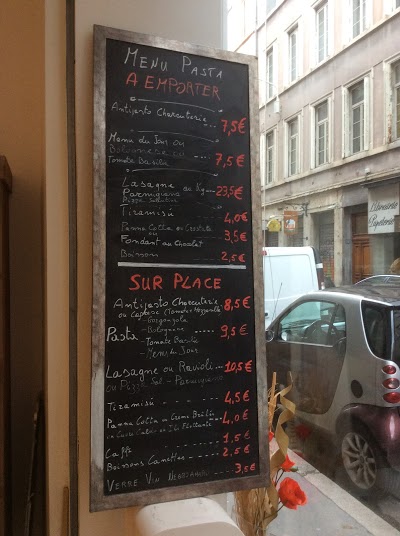 MENU PASTA
A EMPORTER
Antipasto Charcuterie ... 7,5€
Menu du Jour ou
Bolognese ou
Tomate Basilic ... 7,5€
Lasagne ou
Parmigiana 23,5€
Tiramisú ... 4,0€
Panna Cotta ou 3,5€
ou
Fondant au Chocolat
Boisson ... 2,5€
SUR PLACE
Antipasto Charcuterie 8,5€
ou Caprese (Tomate Mozzarella)
- Gorgonzola
Pasta - Bolognese ---- 9,5€
- Tomate Basilic
- Menu du Jour
Lasagne ou Ravioli 10,5€
ou Pizza Sal. - Parmigiana
Tiramisú ---- 4,5€
Panna Cotta ou Creme Brûlée 4,0€
ou
Caffé ---- 1,5€
Boissons Canettes --- 2,5€
VERRE VIN 3,5€
Librairie
Papeterie